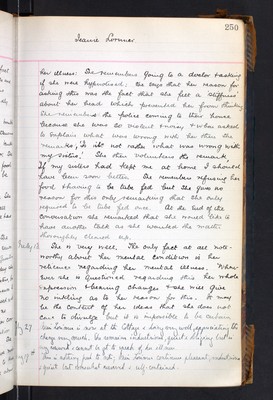 250
Jeanie Lorimer
her illness. She remembers going to a doctor & asking
if she were hypnotised; she says that her reason for
asking this was the fact that she felt a stiffness
about her head which prevented her from thinking
She remembers the police coming to their house
because she was so violent & noisy & when asked
to explain what was wrong with her then she
remarks, "Is it not rather what was wrong with
my sister." She then volunteers the remark
If my mother had kept me at home I should
have been sooner better. She remembers refusing her
food & having to be tube fed but she gives no
reason for this only remarking that she only
required to be tube fed once. At the end of the
conversation she remarked that she would like to
have another talk as she wanted the matter
thoroughly cleared up.
She is very well. The only fact at all note-
worthy about her mental condition is her
reticence regarding her mental illness. When-
ever she is questioned regarding this her whole
expression & bearing changes & she will give
no inkling as to her reason for this. It may
be the content of her ideas that she does not
care to divulge but it is impossible to be certain
May 27 Miss Lorimer is now at the College & doing very well, appreciating the
change very much. She
reserved & cannot be got to speak of her illness
This is nothing new to note, Miss Lorimer continues pleasant,
quiet but somewhat reserved & self-contained.